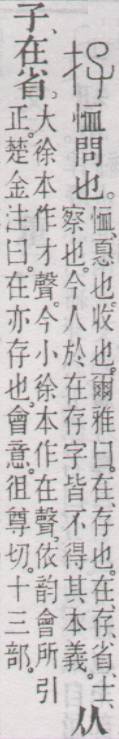 恤問也。
恤、𢝊也。收也。爾雅曰。在、存也。在、存、省、士、
察也。今人於在存字皆不得其本義。
从
子、在省。
大徐本作才聲。今小徐本作在聲。依韵會所引
正。楚金注曰。在亦存也。會意。徂尊切。十三部。